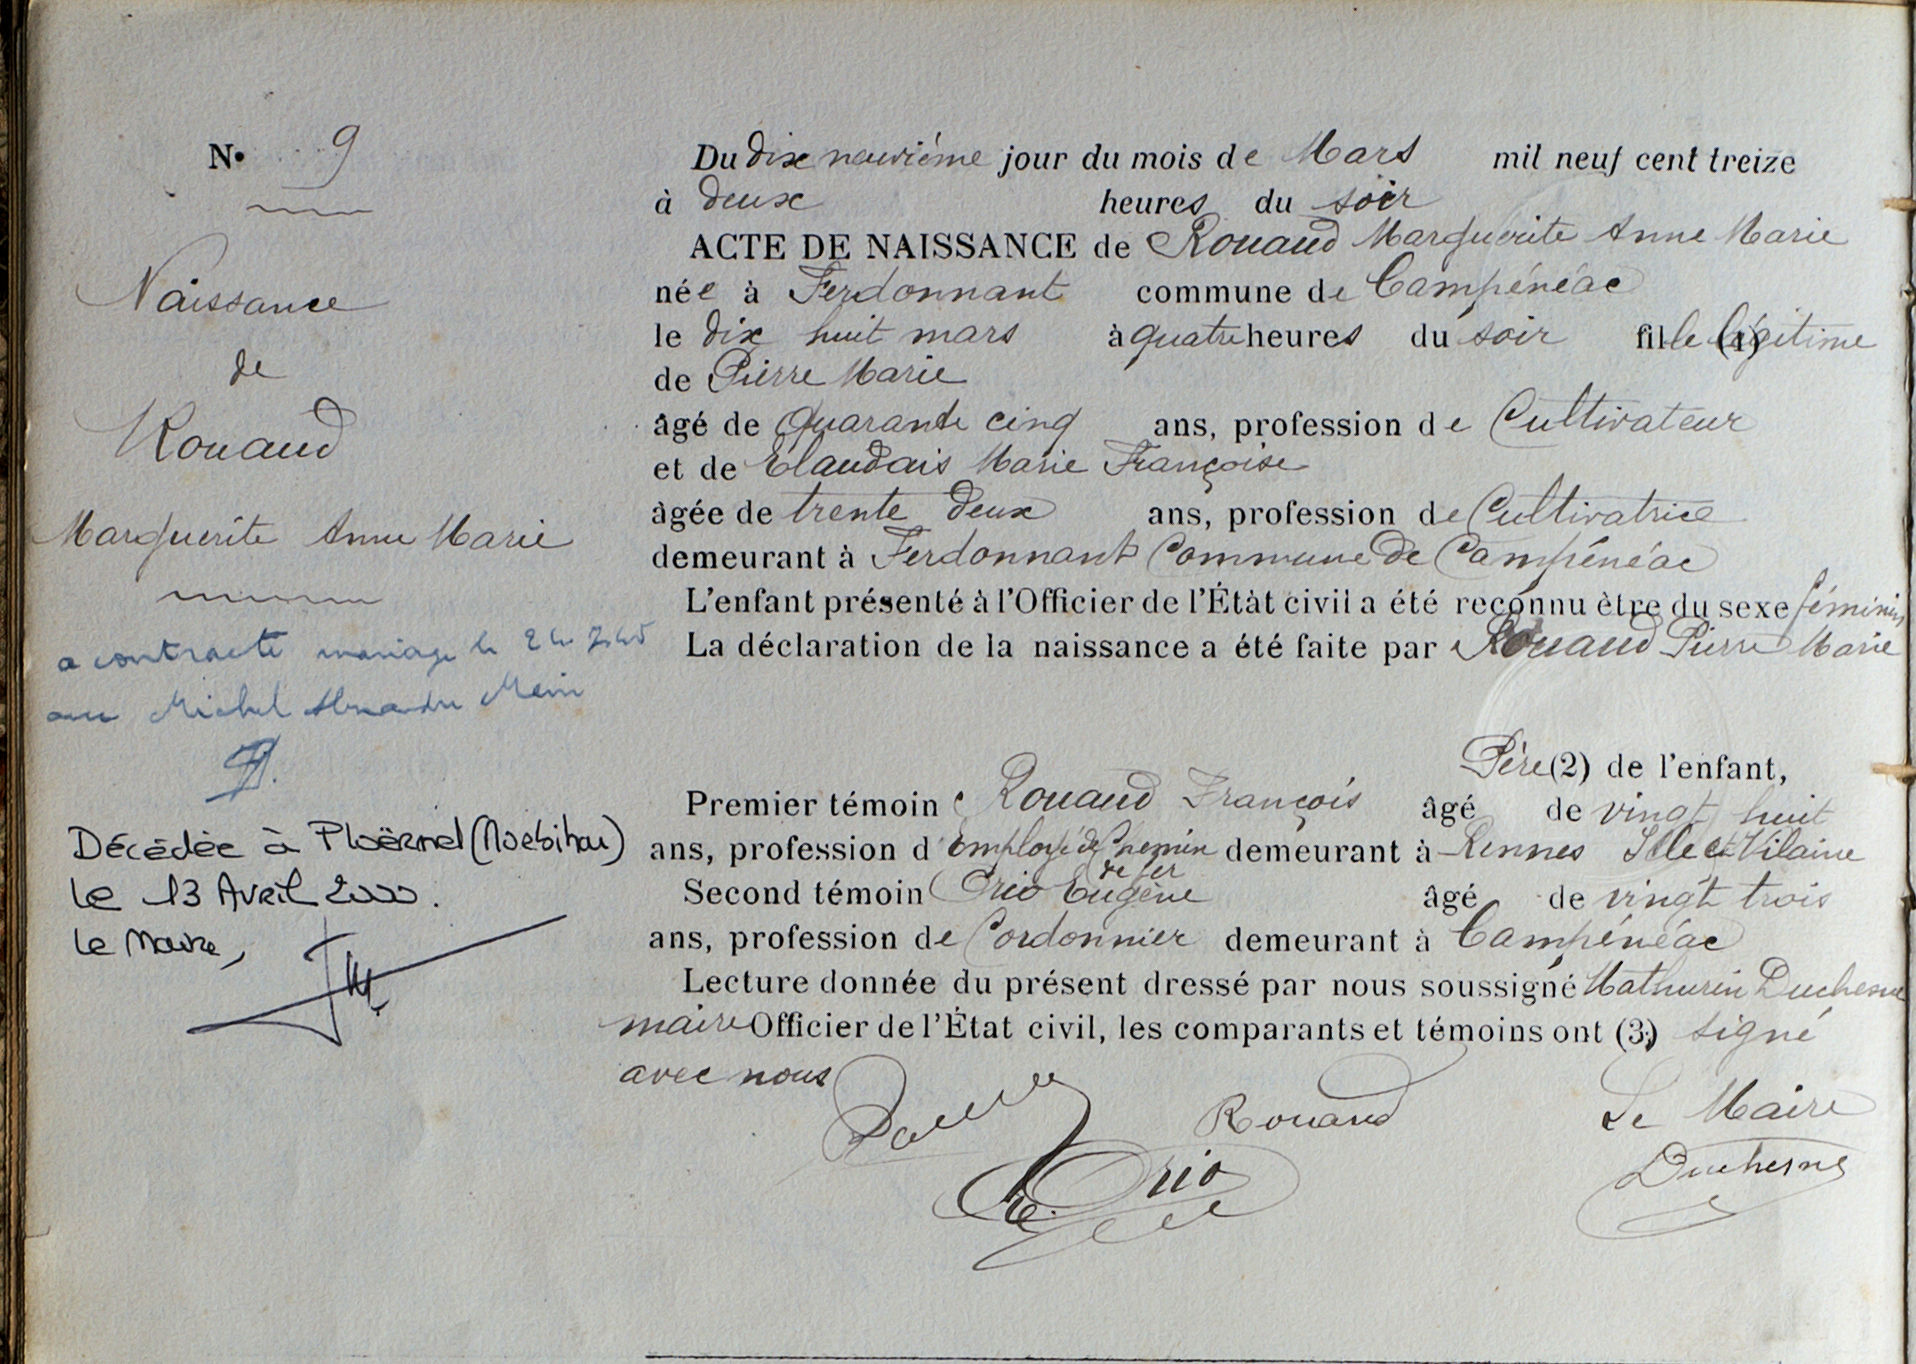 N° 9
Naissance
de
Rouaud
Marguerite Anne Marie
a contracté mariage le
avec Michel Alexandre Marie
Décédée à Ploërmel (Morbihan)
le 13 Avril 2000.
Le Maire,
Du dix neuvième jour du mois de Mars mil neuf cent treize
à deux heures du soir
ACTE DE NAISSANCE de Rouaud Marguerite Anne Marie
née à Ferdonnant commune de Campénéac
le dix huit mars à quatre heures du soir fille (1) légitime
de Pierre Marie
âgé de quarante cinq ans, profession de Cultivateur
et de Eclaudais Marie Françoise
âgée de trente deux ans, profession de Cultivatrice
demeurant à Ferdonnant Commune de Campénéac
L'enfant présenté à l'Officier de l'État civil a été reconnu être du sexe féminin
La déclaration de la naissance a été faite par Rouaud Pierre Marie
Père (2) de l'enfant,
Premier témoin Rouaud François âgé de vingt huit
ans, profession d'employé de Chemin de fer demeurant à Rennes Ille et Vilaine
Second témoin Orio Eugène âgé de vingt trois
ans, profession de Cordonnier demeurant à Campénéac
Lecture donnée du présent dressé par nous soussigné Mathurin Duchesne
maire Officier de l'État civil, les comparants et témoins ont (3) signé
avec nous
Rouaud Le Maire
Orio Duchesne